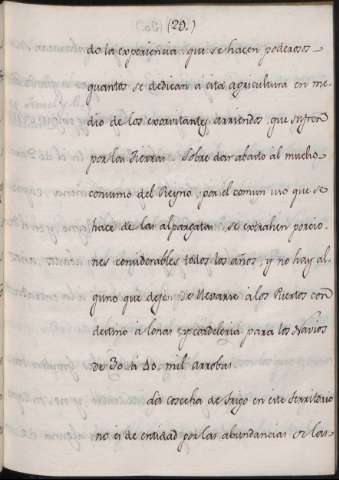 (29.)
do la experiencia que se hacen poderosos
quantos se dedican á esta agricultura en me-
dio de los exorvitantes arriendos que sufren
por las tierras. Sobre dar abasto al mucho
consumo del Reyno, por el comun uso que se
hace de las alpargatas se extrahen porcio-
nes considerables todos los años, y no hay al-
guno que dejen de llevarse á los Puertos con
destino á lonas y cordeleria para los Navios
de 30 á 40 mil arrobas.
La cosecha de trigo en este territorio
no es de entidad por las abundancias de las